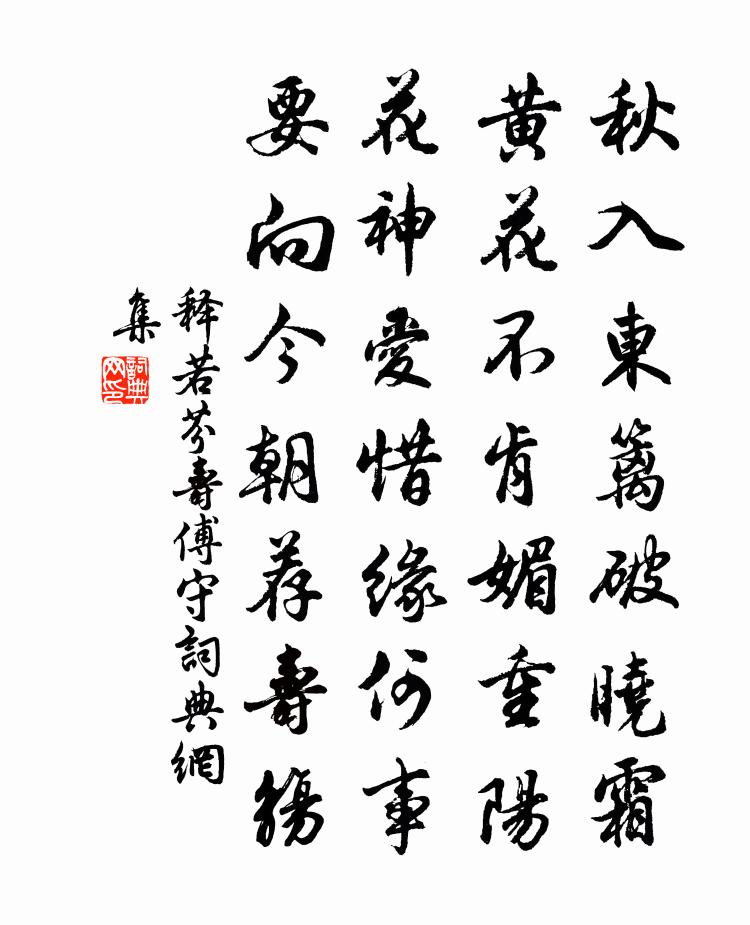 秋入東篱破曉霜
黃花不肯媚重陽
花神愛惜緣何事
要向今朝荐壽觴
释若芬壽傅守詞典網
集
詞典
网印